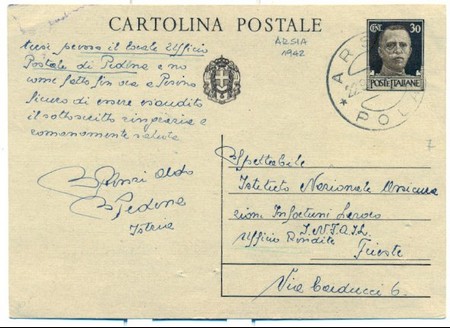 CARTOLINA POSTALE
ARSIA
1942
CENT. 30
POSTE ITALIANE
ARSIA
POLA
il locale Ufficio
Postale di Pedena e no
come fatto fin ora a Pisino
sicuro di essere esaudito
il sottoscritto ringrazia e
romanamente saluta
Aldo
Pedena
Istria
Spettabile
Istituto Nazionale Assicura
zioni Infortuni Lavoro
I.N.F.A.I.L.
Ufficio Rendite
Trieste
Via Carducci 6.
7